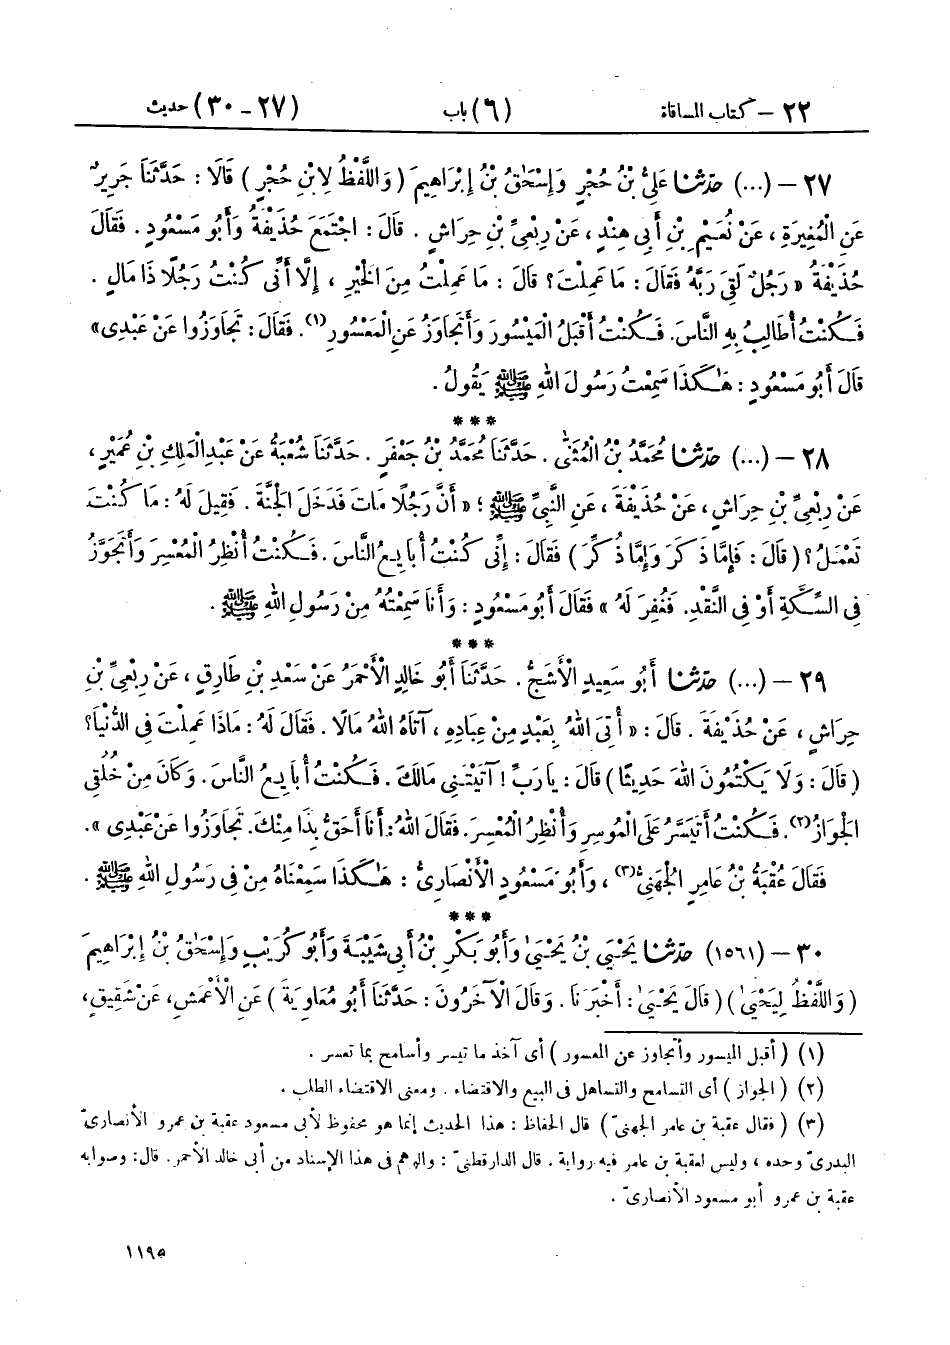 ٢٢ – كتاب المساقاة (٦) باب (٢٧ - ٣٠) حديث
٢٧ – (...) حدّثنا عَلِيُّ بْنُ حُجْرٍ وَإِسْحَٰقُ بْنُ إِبْرَاهِيمَ (وَاللَّفْظُ لِابْنِ حُجْرٍ) قَالَا: حَدَّثَنَا جَرِيرٌ
عَنِ الْمُغِيرَةِ، عَنْ نُعَيْمِ بْنِ أَبِي هِنْدٍ، عَنْ رِبْعِيِّ بْنِ حِرَاشٍ. قَالَ: اجْتَمَعَ حُذَيْفَةُ وَأَبُو مَسْعُودٍ. فَقَالَ
حُذَيْفَةُ « رَجُلٌ لَقِيَ رَبَّهُ فَقَالَ: مَا عَمِلْتَ؟ قَالَ: مَا عَمِلْتُ مِنَ الْخَيْرِ، إِلَّا أَنِّي كُنْتُ رَجُلًا ذَا مَالٍ.
فَكُنْتُ أُطَالِبُ بِهِ النَّاسَ. فَكُنْتُ أَقْبَلُ الْمَيْسُورَ وَأَتَجَاوَزُ عَنِ الْمَعْسُورِ(١). فَقَالَ: تَجَاوَزُوا عَنْ عَبْدِي»
قَالَ أَبُو مَسْعُودٍ: هَٰكَذَا سَمِعْتُ رَسُولَ اللهِ ﷺ يَقُولُ.
***
٢٨ – (...) حدّثنا مُحَمَّدُ بْنُ الْمُثَنَّىٰ. حَدَّثَنَا مُحَمَّدُ بْنُ جَعْفَرٍ. حَدَّثَنَا شُعْبَةُ عَنْ عَبْدِ الْمَلِكِ بْنِ عُمَيْرٍ،
عَنْ رِبْعِيِّ بْنِ حِرَاشٍ، عَنْ حُذَيْفَةَ، عَنِ النَّبِيِّ ﷺ؛ « أَنَّ رَجُلًا مَاتَ فَدَخَلَ الْجَنَّةَ. فَقِيلَ لَهُ: مَا كُنْتَ
تَعْمَلُ؟ (قَالَ: فَإِمَّا ذَكَرَ وَإِمَّا ذُكِّرَ) فَقَالَ: إِنِّي كُنْتُ أُبَايِعُ النَّاسَ. فَكُنْتُ أُنْظِرُ الْمُعْسِرَ وَأَتَجَوَّزُ
فِي السِّكَّةِ أَوْ فِي النَّقْدِ. فَغُفِرَ لَهُ » فَقَالَ أَبُو مَسْعُودٍ: وَأَنَا سَمِعْتُهُ مِنْ رَسُولِ اللهِ ﷺ.
***
٢٩ – (...) حدّثنا أَبُو سَعِيدٍ الْأَشَجُّ. حَدَّثَنَا أَبُو خَالِدٍ الْأَحْمَرُ عَنْ سَعْدِ بْنِ طَارِقٍ، عَنْ رِبْعِيِّ بْنِ
حِرَاشٍ، عَنْ حُذَيْفَةَ. قَالَ: « أُتِيَ اللهُ بِعَبْدٍ مِنْ عِبَادِهِ، آتَاهُ اللهُ مَالًا. فَقَالَ لَهُ: مَاذَا عَمِلْتَ فِي الدُّنْيَا؟
(قَالَ: وَلَا يَكْتُمُونَ اللهَ حَدِيثًا) قَالَ: يَا رَبِّ! آتَيْتَنِي مَالَكَ. فَكُنْتُ أُبَايِعُ النَّاسَ. وَكَانَ مِنْ خُلُقِي
الْجَوَازُ(٢). فَكُنْتُ أَتَيَسَّرُ عَلَى الْمُوسِرِ وَأُنْظِرُ الْمُعْسِرَ. فَقَالَ اللهُ: أَنَا أَحَقُّ بِذَا مِنْكَ. تَجَاوَزُوا عَنْ عَبْدِي ».
فَقَالَ عُقْبَةُ بْنُ عَامِرٍ الْجُهَنِيُّ(٣)، وَأَبُو مَسْعُودٍ الْأَنْصَارِيُّ: هَٰكَذَا سَمِعْنَاهُ مِنْ فِي رَسُولِ اللهِ ﷺ.
***
٣٠ – (١٥٦١) حدّثنا يَحْيَىٰ بْنُ يَحْيَىٰ وَأَبُو بَكْرِ بْنُ أَبِي شَيْبَةَ وَأَبُو كُرَيْبٍ وَإِسْحَٰقُ بْنُ إِبْرَاهِيمَ
(وَاللَّفْظُ لِيَحْيَىٰ) (قَالَ يَحْيَىٰ: أَخْبَرَنَا. وَقَالَ الْآخَرُونَ: حَدَّثَنَا أَبُو مُعَاوِيَةَ) عَنِ الْأَعْمَشِ، عَنْ شَقِيقٍ،
(١) (أقبل الميسور وأتجاوز عن المعسور) أى آخذ ما تيسر وأسامح بما تعسر.
(٢) (الجواز) أى التسامح والتساهل فى البيع والاقتضاء. ومعنى الاقتضاء الطلب.
(٣) (فقال عقبة بن عامر الجهنىّ) قال الحفاظ: هذا الحديث إنما هو محفوظ لأبى مسعود عقبة بن عمرو الأنصارىّ
البدرىّ وحده، وليس لعقبة بن عامر فيه رواية. قال الدارقطنىّ: والوهم فى هذا الإسناد من أبى خالد الأحمر. قال: وصوابه
عقبة بن عمرو أبو مسعود الأنصارىّ.
١١٩٥